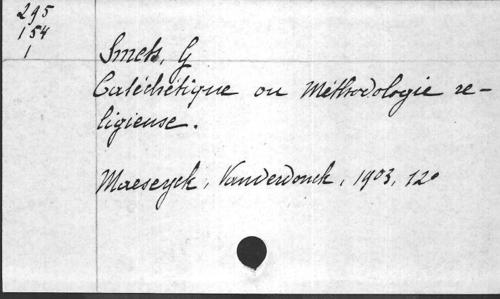 295
154
1
Smets, G
Catéchétique ou Méthodologie re-
ligieuse.
Maeseyck, Vanderdonck, 1903, 12°